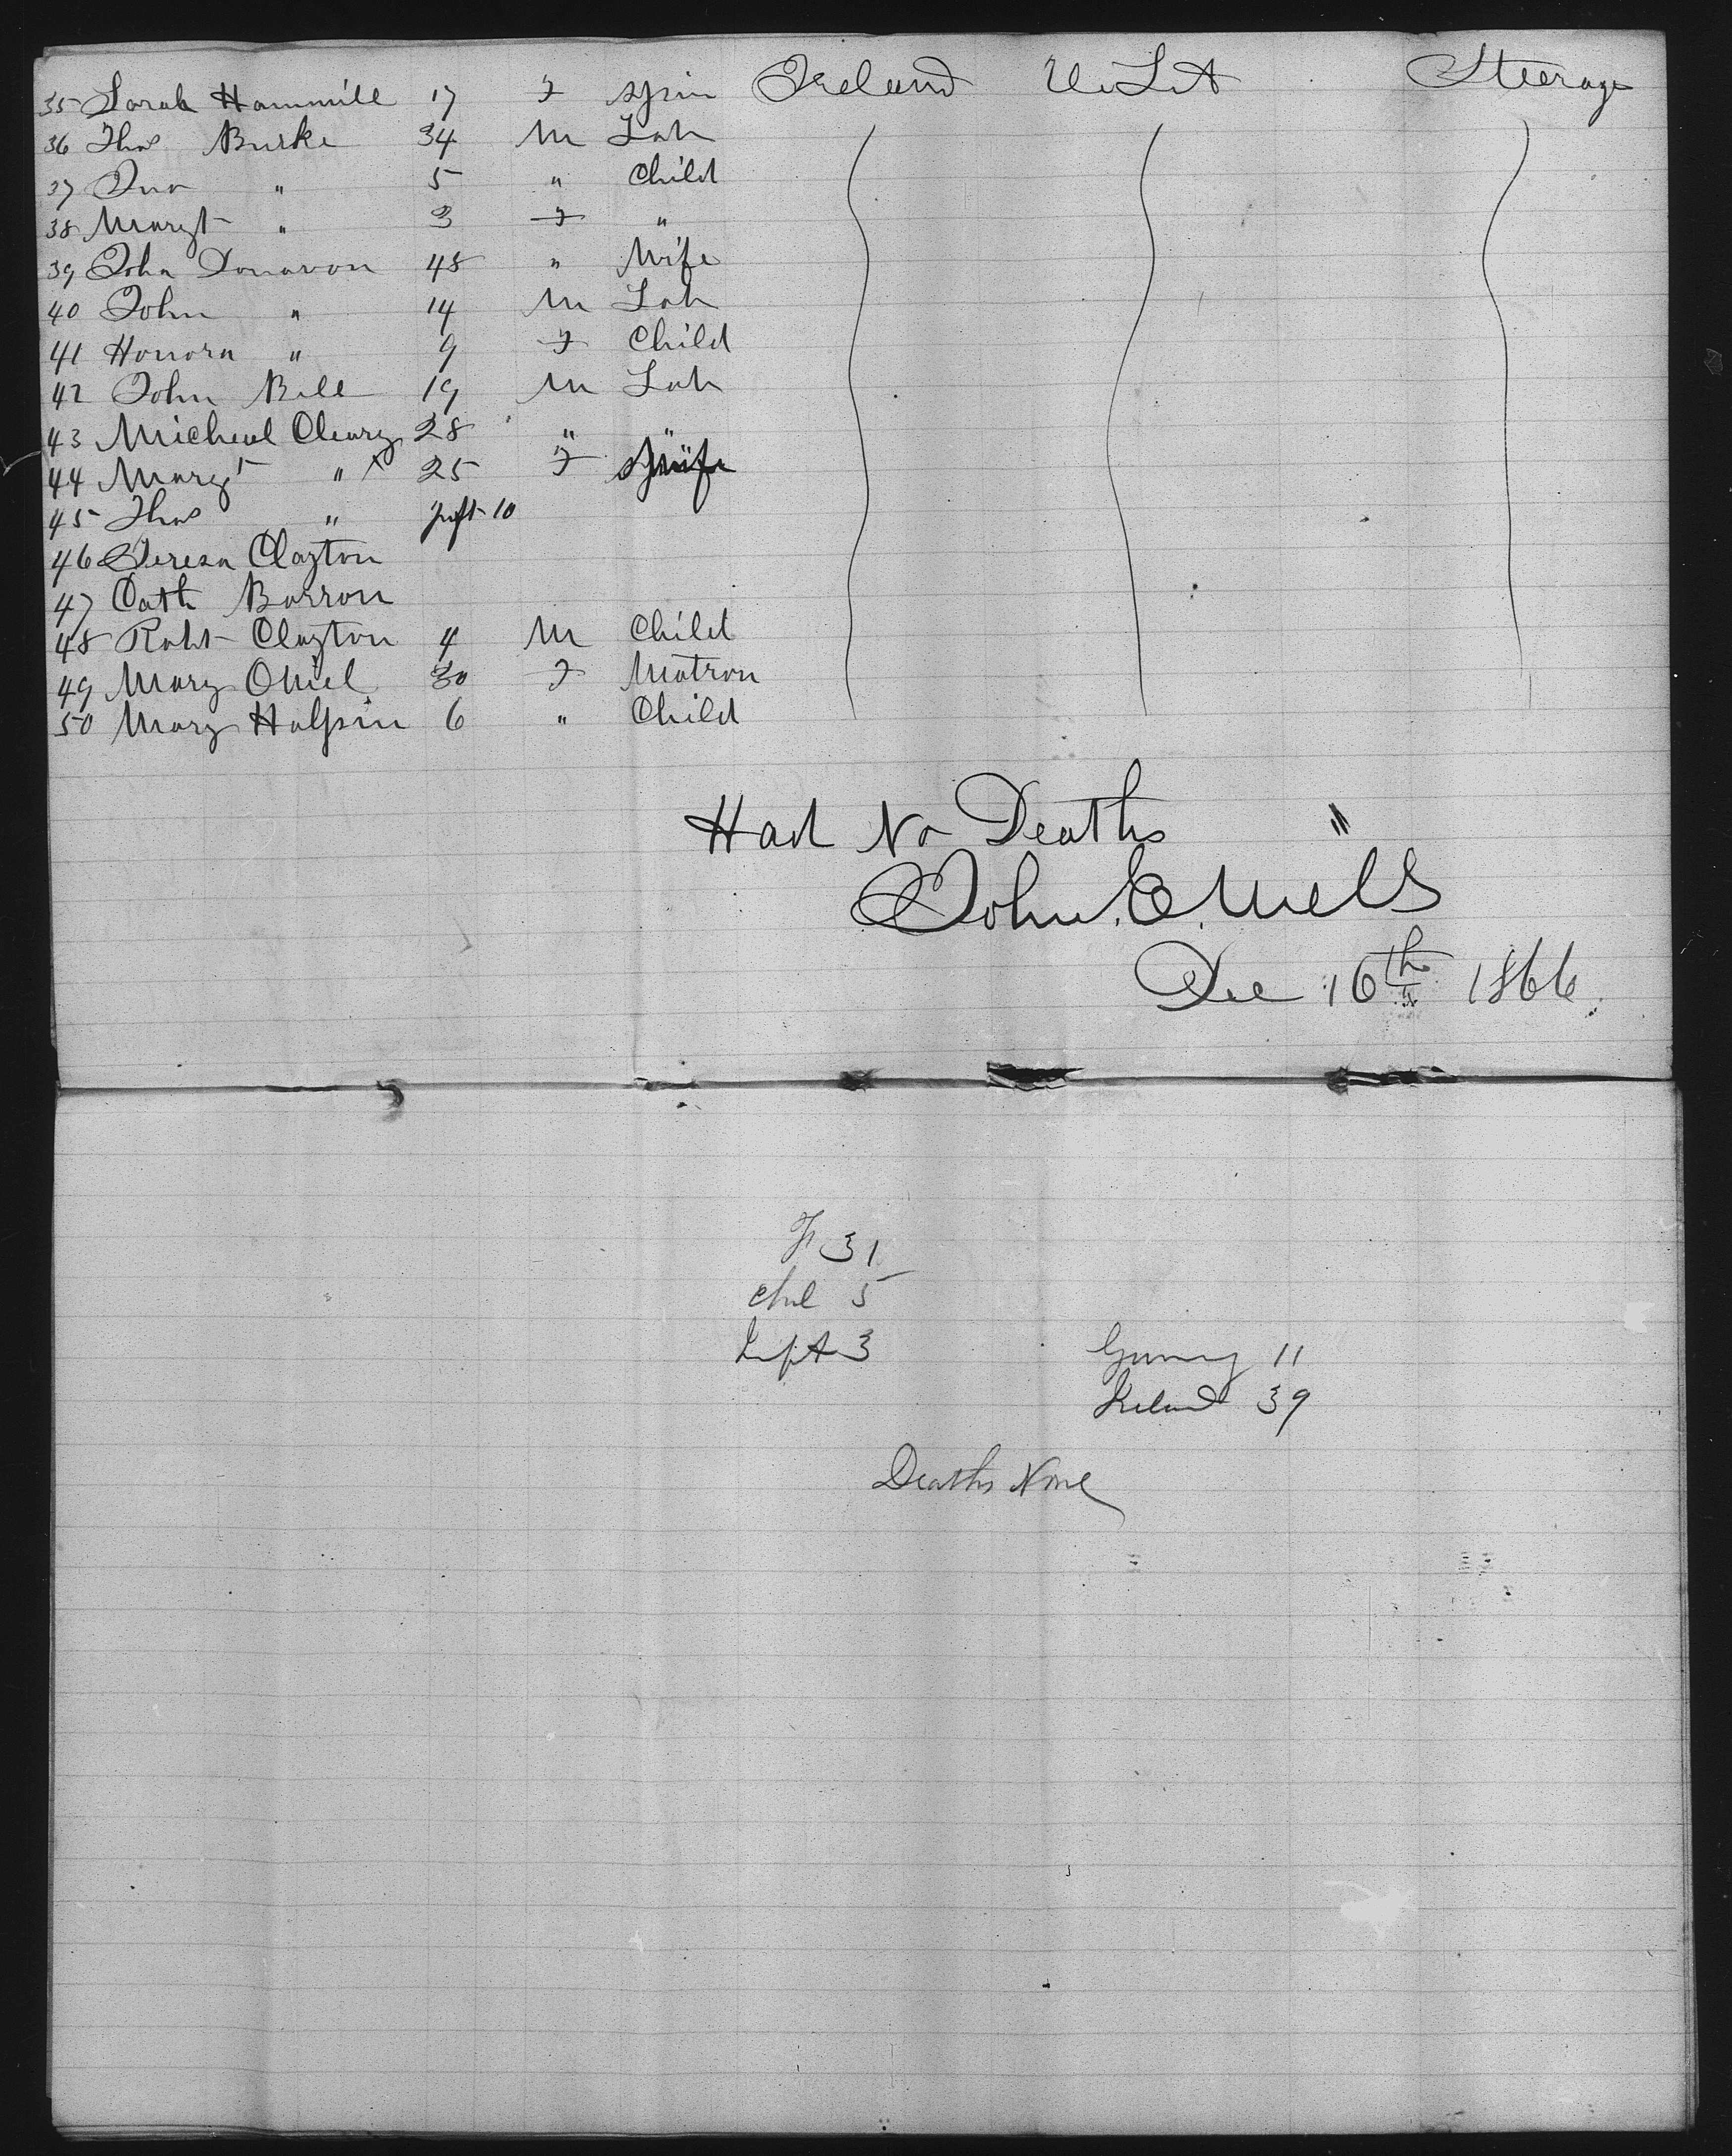 35 Sarah Hammill 17 F Spin Ireland U. St Steerage
36 Thos Burke 34 M Lab
37 Jno " 5 " Child
38 Margt " 3 F "
39 John Donavon 48 " Wife
40 John " 14 M Lab
41 Honora " 9 F Child
42 John Bell 19 M Lab
43 Micheal Cleary 28 " "
44 Margt " 25 F Wife
45 Thos " Inft 10
46 Teresa Clayton
47 Cath Barron
48 Robt Clayton 4 M Child
49 Mary ONiel 30 F Matron
50 Mary Halpin 6 " Child
Had No Deaths "
John. E.
Dec 16th 1866
F 31
Chil 5
Inft 3
Germy 11
Ireland 39
Deaths None